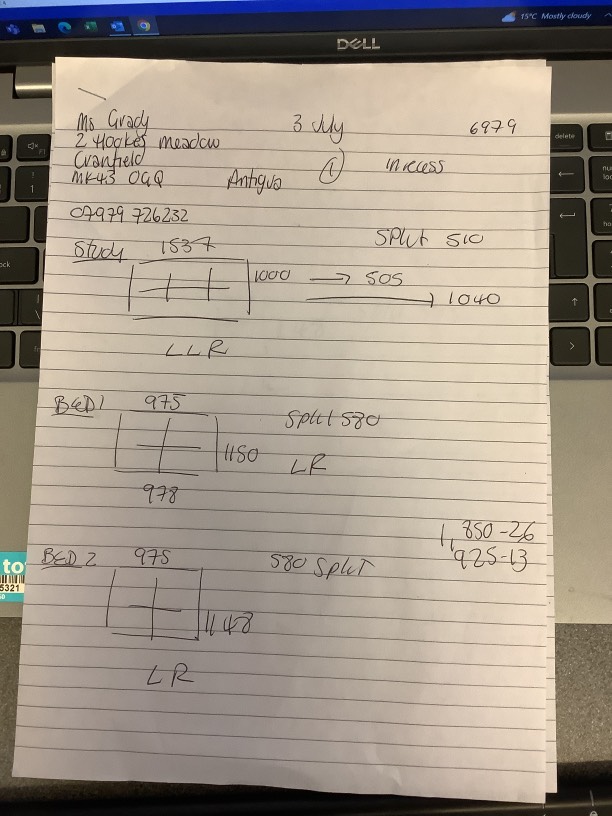 15°C Mostly cloudy
DELL
Ms Grady 3 July 6979
2 Hookes Meadow
Cranfield ① in recess
MK43 0GQ Antigua
07979 726232
Study 1537 Split 510
1000 → 505
→ 1040
LLR
BED 1 975 Split 580
1150 LR
978
11,850-26
925-13
BED 2 975 580 Split
1148
LR
delete
to
5321